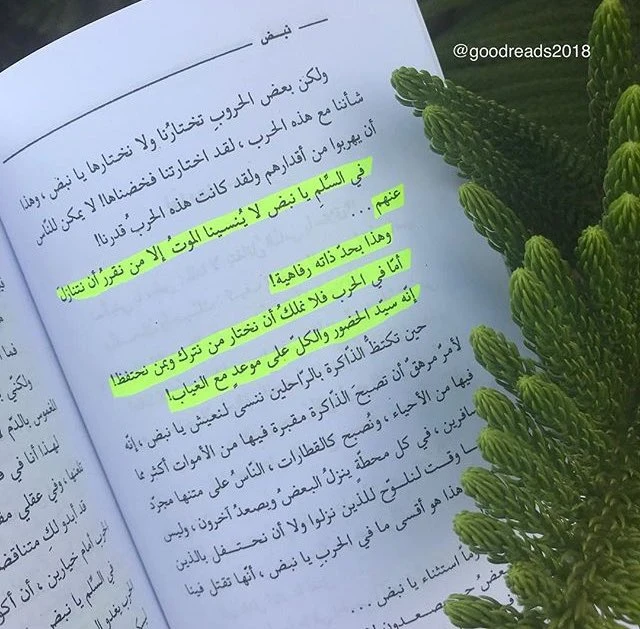 @goodreads2018
نبض
ولكن بعض الحروبِ تختارُنا ولا نختارها يا نبض، وهذا
شأننا مع هذه الحرب، لقد اختارتنا فخضناها! لا يمكن للنّاس
أن يهربوا من أقدارهم ولقد كانت هذه الحرب قدرنا!
في السِّلمِ يا نبض لا يُنسينا الموتُ إلا من نقررُ أن نتنازل
عنهم ...
وهذا بحدّ ذاته رفاهية!
أمّا في الحرب فلا نملكُ أن نختار من نترك وبمن نحتفظ!
إنّه سيّد الحضور والكلّ على موعدٍ مع الغياب!
حين تكتظُّ الذّاكرة بالرّاحلين ننسى لنعيش يا نبض، إنّه
لأمرٌ مرهقٌ أن تصبحَ الذّاكرة مقبرة فيها من الأموات أكثر ممّا
فيها من الأحياء، وتُصبح كالقطارات، النّاسُ على متنها مجرّد
سافرين، في كل محطّةٍ ينزلُ البعضُ ويصعدُ آخرون، وليس
وقت لنلوّح للذين نزلوا ولا أن نحتفل بالذين
هذا هو أقسى ما في الحرب يا نبض، أنّها تقتل فينا
استثناء يا نبض ...